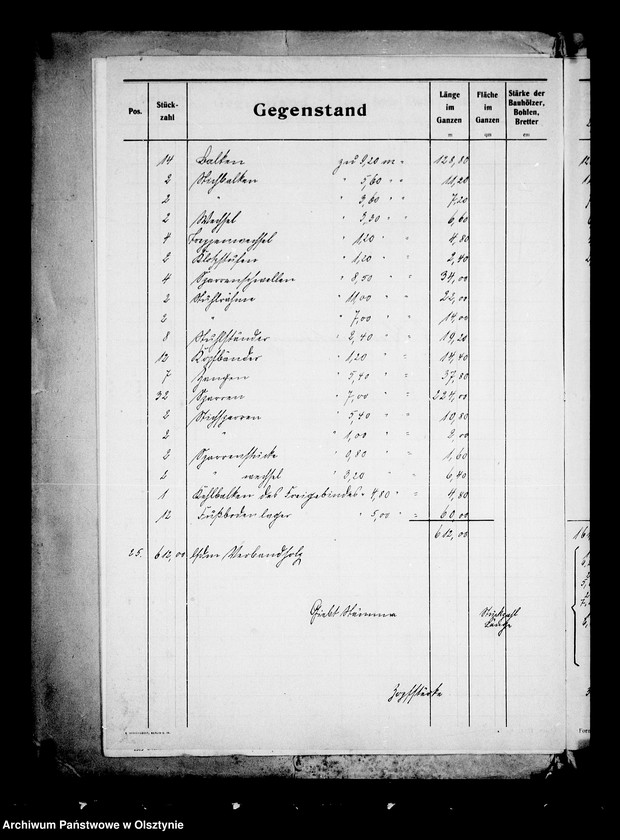 Pos.
Stück-
zahl
Gegenstand
Länge
im
Ganzen
m
Fläche
im
Ganzen
qm
Stärke der
Bauhölzer,
Bohlen,
Bretter
cm
14 Balken zu 9,20 m = 128,80
2 Stichbalken " 5,60 " = 11,20
2 " " 3,60 " = 7,20
2 Wechsel " 3,30 " = 6,60
4 Treppenwechsel " 1,20 " = 4,80
2 Klotzstufen " 1,20 " = 2,40
4 Sparrenschwellen " 8,50 " = 34,00
2 Stuhlrähme " 11,00 " = 22,00
2 " " 7,00 " = 14,00
8 Stuhlständer " 2,40 " = 19,20
12 Kopfbänder " 1,20 " = 14,40
7 Zangen " 5,40 " = 37,80
32 Sparren " 7,00 " = 224,00
2 Stichsparren " 5,40 " = 10,80
2 " " 1,00 " = 2,00
2 Sparrenstücke " 0,80 " = 1,60
2 " wechsel " 3,20 " = 6,40
1 Kehlbalken des Freigebindes " 4,80 " = 4,80
12 Fußbodenlager " 5,00 " = 60,00
612,00
25. 612,00 lfdm Verbandholz
Giebt Stämme
Stückzahl
Länge
Zopfstärke
Archiwum Państwowe w Olsztynie